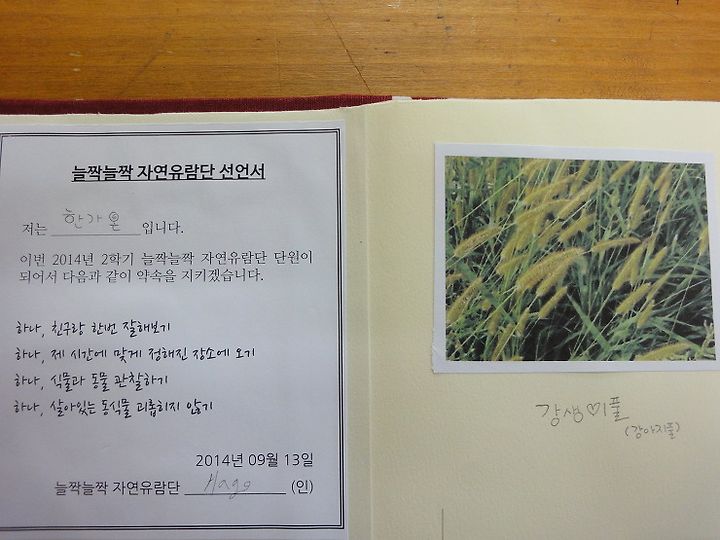 늘짝늘짝 자연유람단 선언서
저는 한가온 입니다.
이번 2014년 2학기 늘짝늘짝 자연유람단 단원이
되어서 다음과 같이 약속을 지키겠습니다.
하나, 친구랑 한번 잘해보기
하나, 제 시간에 맞게 정해진 장소에 오기
하나, 식물과 동물 관찰하기
하나, 살아있는 동식물 괴롭히지 않기
2014년 09월 13일
늘짝늘짝 자연유람단 Hago (인)
강생♡이풀
(강아지풀)